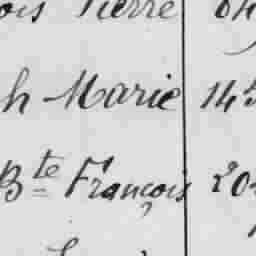 ois Pierre
h Marie 145
Bte François 20